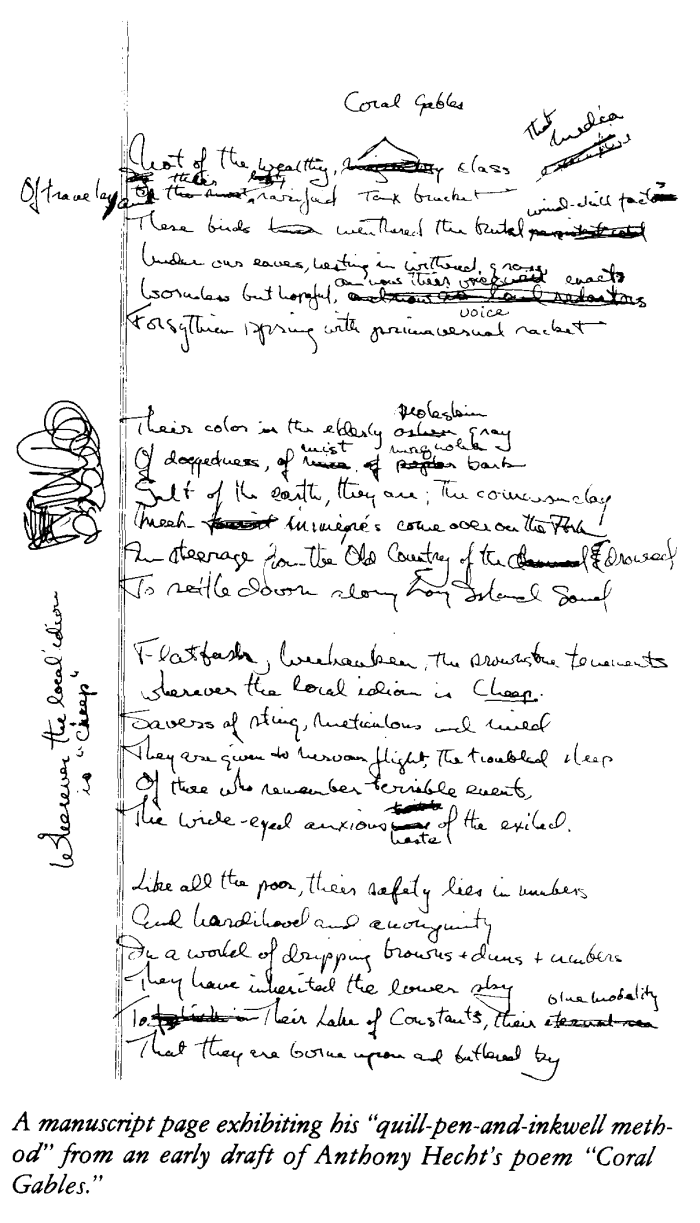 Coral Gables
That media
Not of the wealthy, class
Of travel by their rarified tax bracket
wind-chill factor
These birds weathered the brutal
Under our eaves, nesting in withered grass
anxious their enacts
Wormless but hopeful,
voice
Forsythian spring with primavernal racket
Their color is the elderly gray
Of doggedness, of mist, of magnolia bark
Salt of the earth, they are; the common clay
Meek immigrés come over on the Ark
In steerage from the Old Country of the drowned
To settle down along Long Island Sound
Flatbush, Weehauken, the brownstone tenements
Wherever the local idiom is Cheep.
Savers of string, meticulous and mild
They are given to nervous flight, the troubled sleep
Of those who remember terrible events,
The wide-eyed anxious haste of the exiled.
Wherever the local idiom
is "Cheep"
Like all the poor, their safety lies in numbers
And hardihood and anonymity
In a world of dripping browns + duns + umbers
They have inherited the lower sky
blue mobility
To Their Lake of Constants, their
That they are borne upon and battered by
A manuscript page exhibiting his "quill-pen-and-inkwell meth-
od" from an early draft of Anthony Hecht's poem "Coral
Gables."